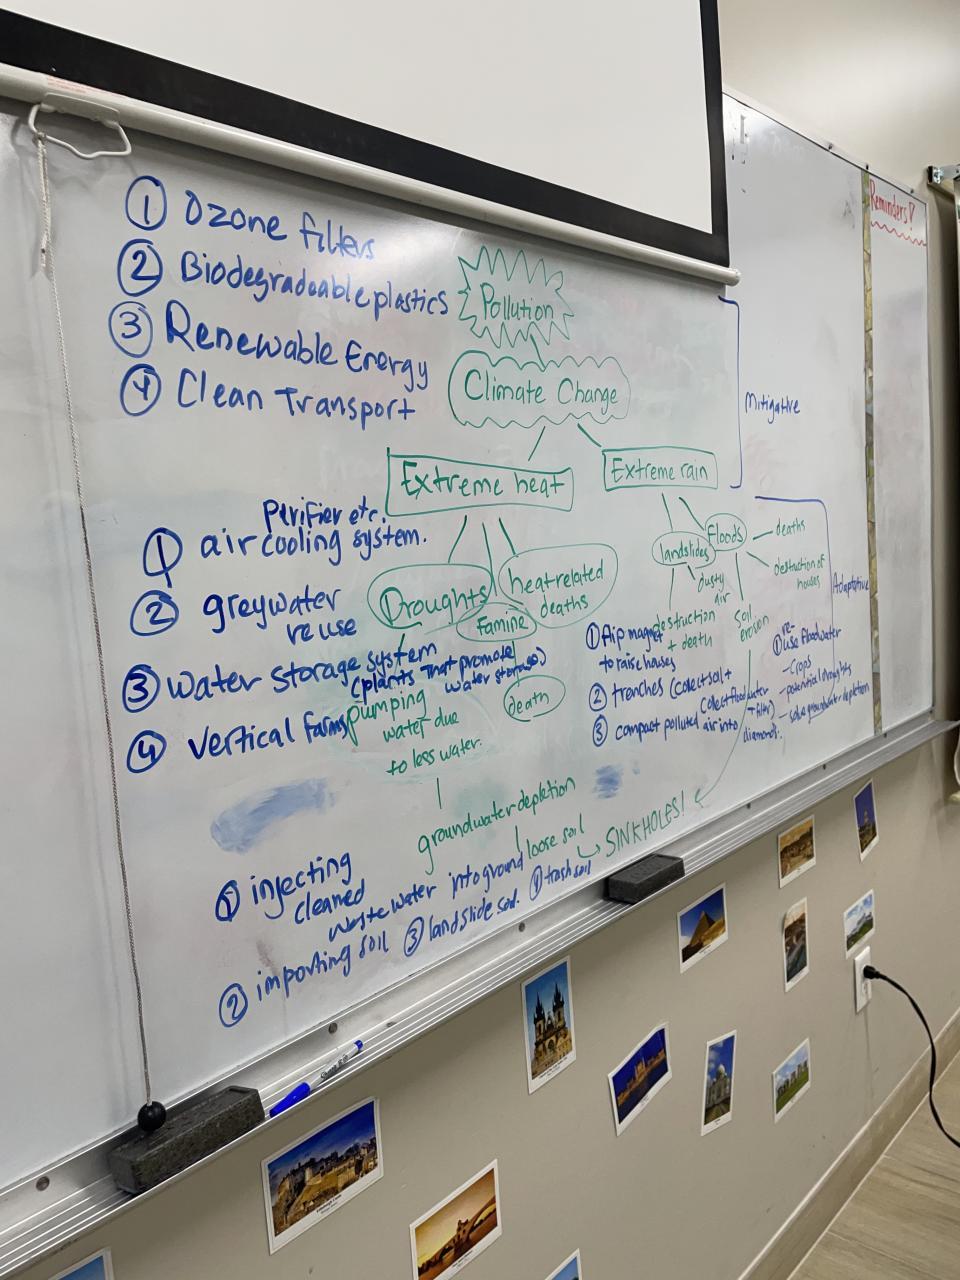 Reminders!
① Ozone filters
② Biodegradeable plastics
③ Renewable Energy
④ Clean Transport
Pollution
Climate Change
Mitigative
Extreme heat
Extreme rain
Droughts
heat related
deaths
Famine
death
pumping
water due
to less water.
groundwater depletion
loose soil
SINKHOLES!
landslides
Floods
deaths
destruction of
houses
dusty
air
destruction
+ death
Soil
erosion
Adaptative
Perifier etc.
① air cooling system.
② greywater
re use
③ water storage system
(plants that promote
water storage)
④ vertical farms
① flip magnet
to raise houses
② trenches (collect soil +
collect flood water
+ filter)
③ compact polluted air into
diamonds.
① re-
use floodwater
- Crops
- potential droughts
- solve groundwater depletion
① injecting
cleaned
waste water into ground
② importing soil ③ landslide soil. ④ trash soil